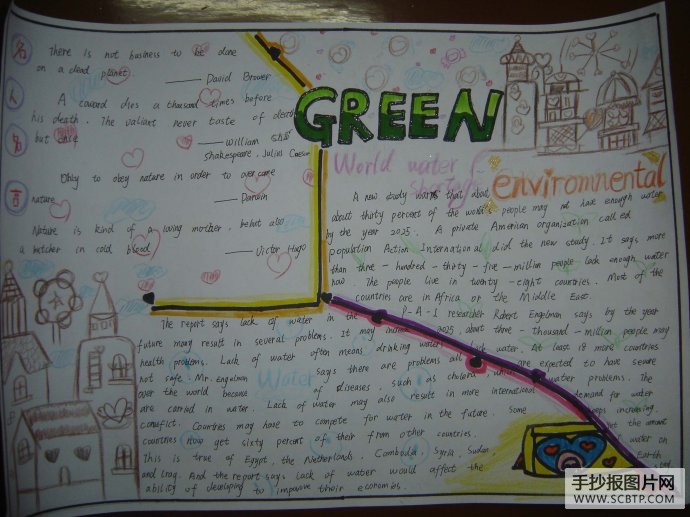 名人名言
There is not business to be done
on a dead planet
—— David Brower
A coward dies a thousand times before
his death. The valiant never taste of death
but
—— William
Shakespeare, Julius Caesar
Obly to obey nature in order to overcome
nature
—— Darwin
Nature is kind of a loving mother, but also
a butcher in cold blood
—— Victor Hugo
GREEN
World water shortage
enviromnental
A new study warns that about
about thirty percent of the world people may not have enough water
by the year 2025. A private American organization called
population Action International did the new study. It says more
than three - hundred - thirty - five - million people lack enough water
now. The people live in twenty - eight countries. Most of the
countries are in Africa or the Middle East.
P-A-I researcher Robert Engelman says by the year
The report says lack of water in the
2025, about three - thousand - million people may
future may result in several problems. It may
lack water. At least 18 more countries
health problems. Lack of water often means drinking water
are expected to have severe
not safe. Mr. Engelman says there are problems all
water problems. The
over the world because of diseases, such as cholera, which
demand for water
are carried in water. Lack of water may also result in more international
keeps increasing.
conflict. Countries may have to compete for water in the future. Some
get the amount
countries now get sixty percent of their from other countries.
water on
This is true of Egypt, the Netherlands, Cambodia, Syria, Sudan,
Earth
and Iraq. And the report says lack of water would affect the
ability of developing to improve their economies.
Water
手抄报图片网
WWW.SCBTP.COM